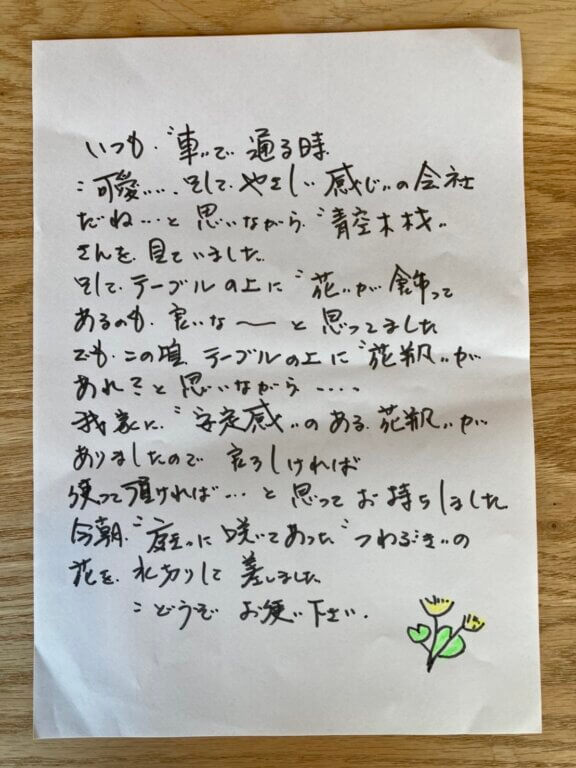 いつも、"車"で 通る時
:可愛い…、そして、やさしい 感じ"の会社
だね…と 思いながら、"青空木材"
さんを、見ていました
そして、テーブルの上に"花"が 飾って
あるのも、良いな〜と思ってました
でも、この頃、テーブルの上に"花瓶"が
あれ?と思いながら・・・・
我家に、"安定感"のある、花瓶"が
ありましたので 宜ろしければ
使って頂ければ…と思って お持ちしました
今朝、"庭"に 咲いてあった"つわぶき"の
花を、水切りして 差しました
:どうぞ お使い下さい。